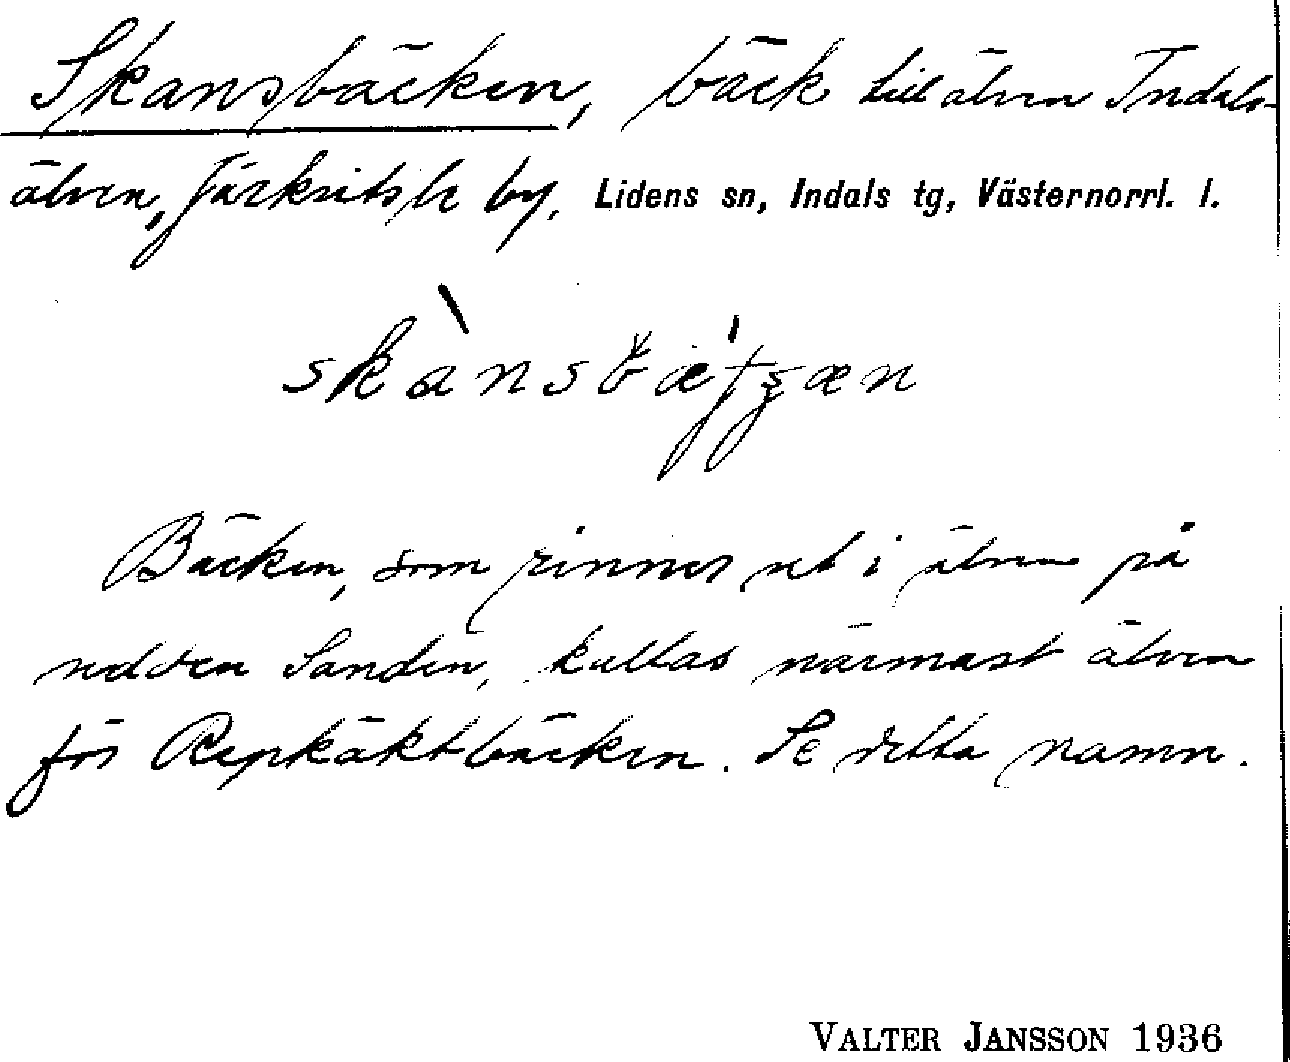 Skansbäcken, bäck till älven Indals-
älven, Järkvitsle by, Lidens sn, Indals tg, Västernorrl. l.
Bäcken, som rinner ut i älven på
udden Sanden, kallas närmast älven
för Repkäktbäcken. Se detta namn.
VALTER JANSSON 1936